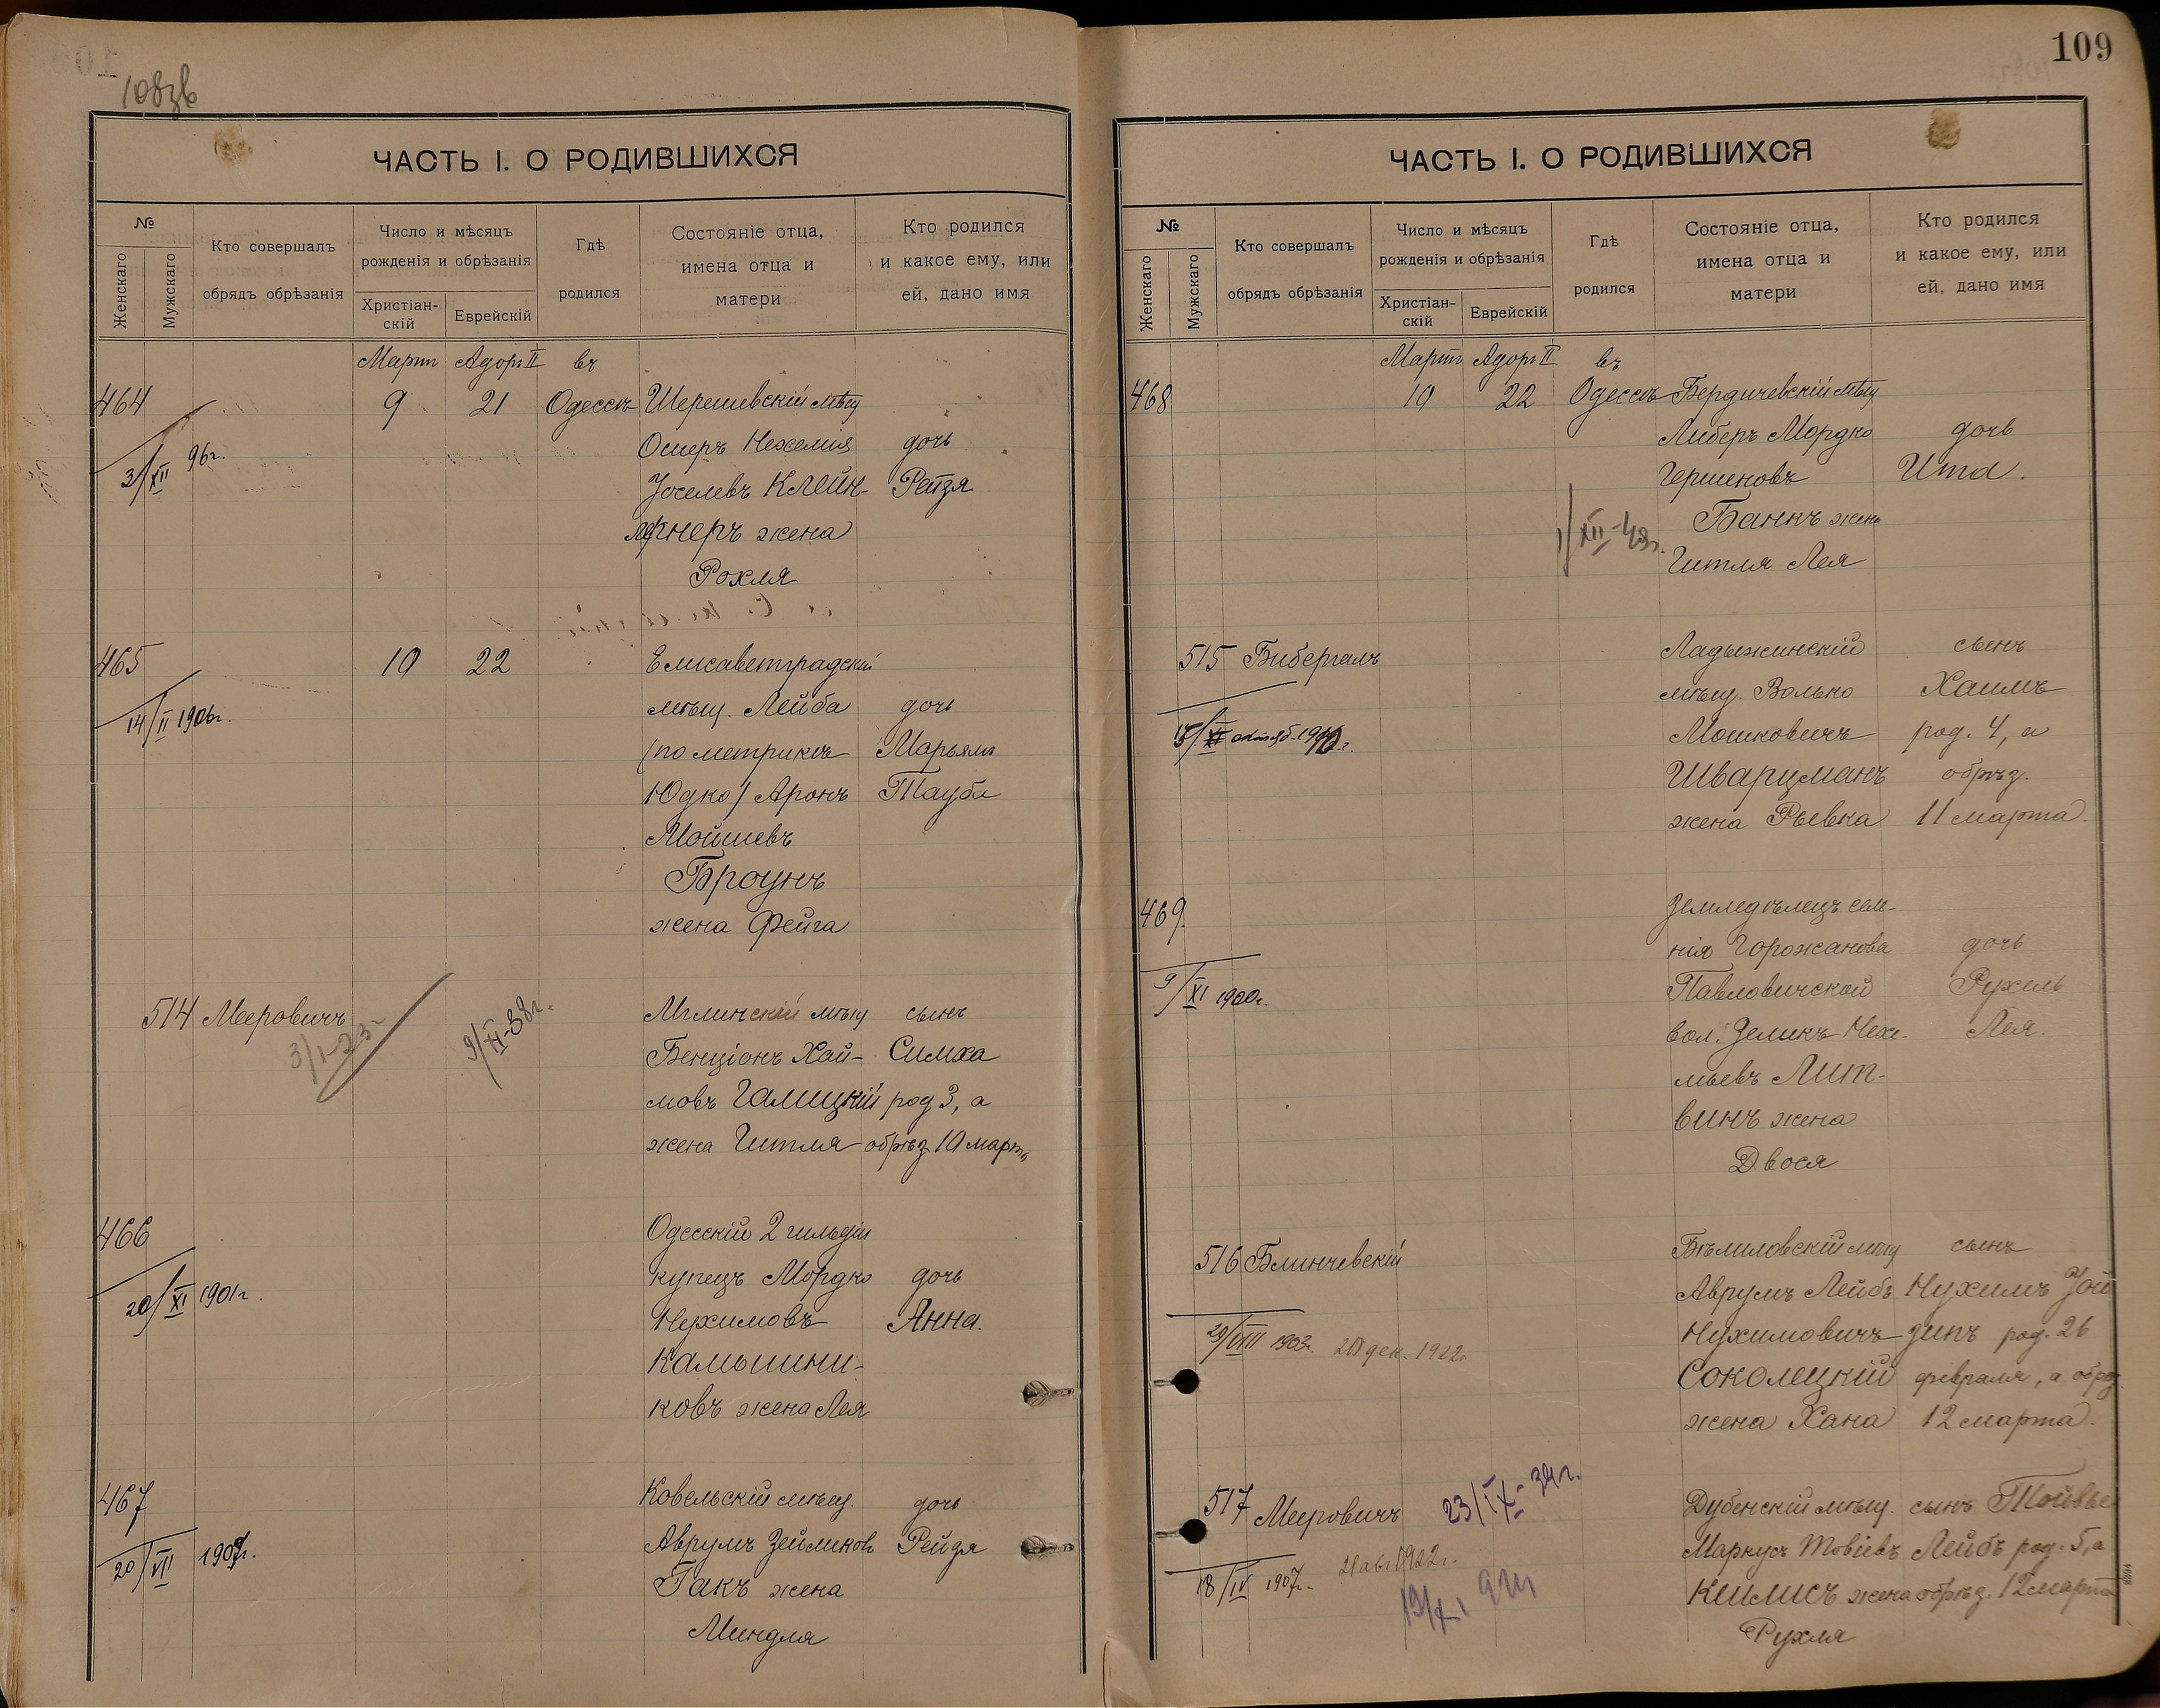 108зв
ЧАСТЬ I. О РОДИВШИХСЯ
№
Женскаго
Мужскаго
Кто совершалъ
обрядъ обрѣзанія
Число и мѣсяцъ
рожденія и обрѣзанія
Христіан-
скій
Еврейскій
Гдѣ
родился
Состояніе отца,
имена отца и
матери
Кто родился
и какое ему, или
ей, дано имя
Мартъ Адоръ II въ
464 9 21 Одессѣ Шерешевскій мѣщ
Ошеръ Нехемія дочь
3/XII 96г.
Іоселевъ Клейн- Рейзя
жена
Рохля
465 10 22 Елисаветградскій
мѣщ. Лейба дочь
14/II 1906г.
(по метрикѣ Марьямъ
Юдко) Аронъ Таубл
Мойшевъ
Броунъ
жена Фейга
514 Мееровичъ Мглинскій мѣщ сынъ
3/I-23г 9/XI-38г.
Бенціонъ Хай- Симха
мовъ Галицкій род 3, а
жена Гитля обрѣз 10 марта
466 Одесскій 2 гильдіи
купецъ Мордко дочь
20/XI 1901г.
Нухимовъ Анна.
Камышни-
ковъ жена Лея
467 Ковельскій мѣщ. дочь
Аврумъ Зейликовъ Рейзя
20/VII 1907г.
Гакъ жена
Миндля
109
ЧАСТЬ I. О РОДИВШИХСЯ
№
Женскаго
Мужскаго
Кто совершалъ
обрядъ обрѣзанія
Число и мѣсяцъ
рожденія и обрѣзанія
Христіан-
скій
Еврейскій
Гдѣ
родился
Состояніе отца,
имена отца и
матери
Кто родился
и какое ему, или
ей, дано имя
Мартъ Адоръ II въ
468 10 22 Одессѣ Бердичевскій мѣщ
Либеръ Мордко дочь
Гершеновъ Ита.
Банкъ жена
Гитля Лея
515 Бибергалъ Ладыжинскій сынъ
мѣщ. Волько Хаимъ
Мошковичъ род. 4, а
Шварцманъ обрѣз.
жена Рывка 11 марта.
469. Земледѣлецъ селе-
нія Горожанова дочь
9/XI 1900г.
Павловичской Рухель
вол. Зеликъ Нехе- Лея.
мьевъ Лит-
винъ жена
Двося
516 Блинчевскій Бѣлиловскій мѣщ сынъ
Аврумъ Лейбъ Нухимъ Зой
29/VIII 1903г. 20 дек. 1922г
Нухимовичъ зипъ род. 26
Соколецкій февраля, а обрѣз.
жена Хана 12 марта.
517 Мееровичъ 23/IX-39г. Дубенскій мѣщ. сынъ Тойвье
Маркусъ Товіевъ Лейбъ род. 5, а
18/IV 1907г.
Кшлисъ жена обрѣз. 12 марта
Рухля